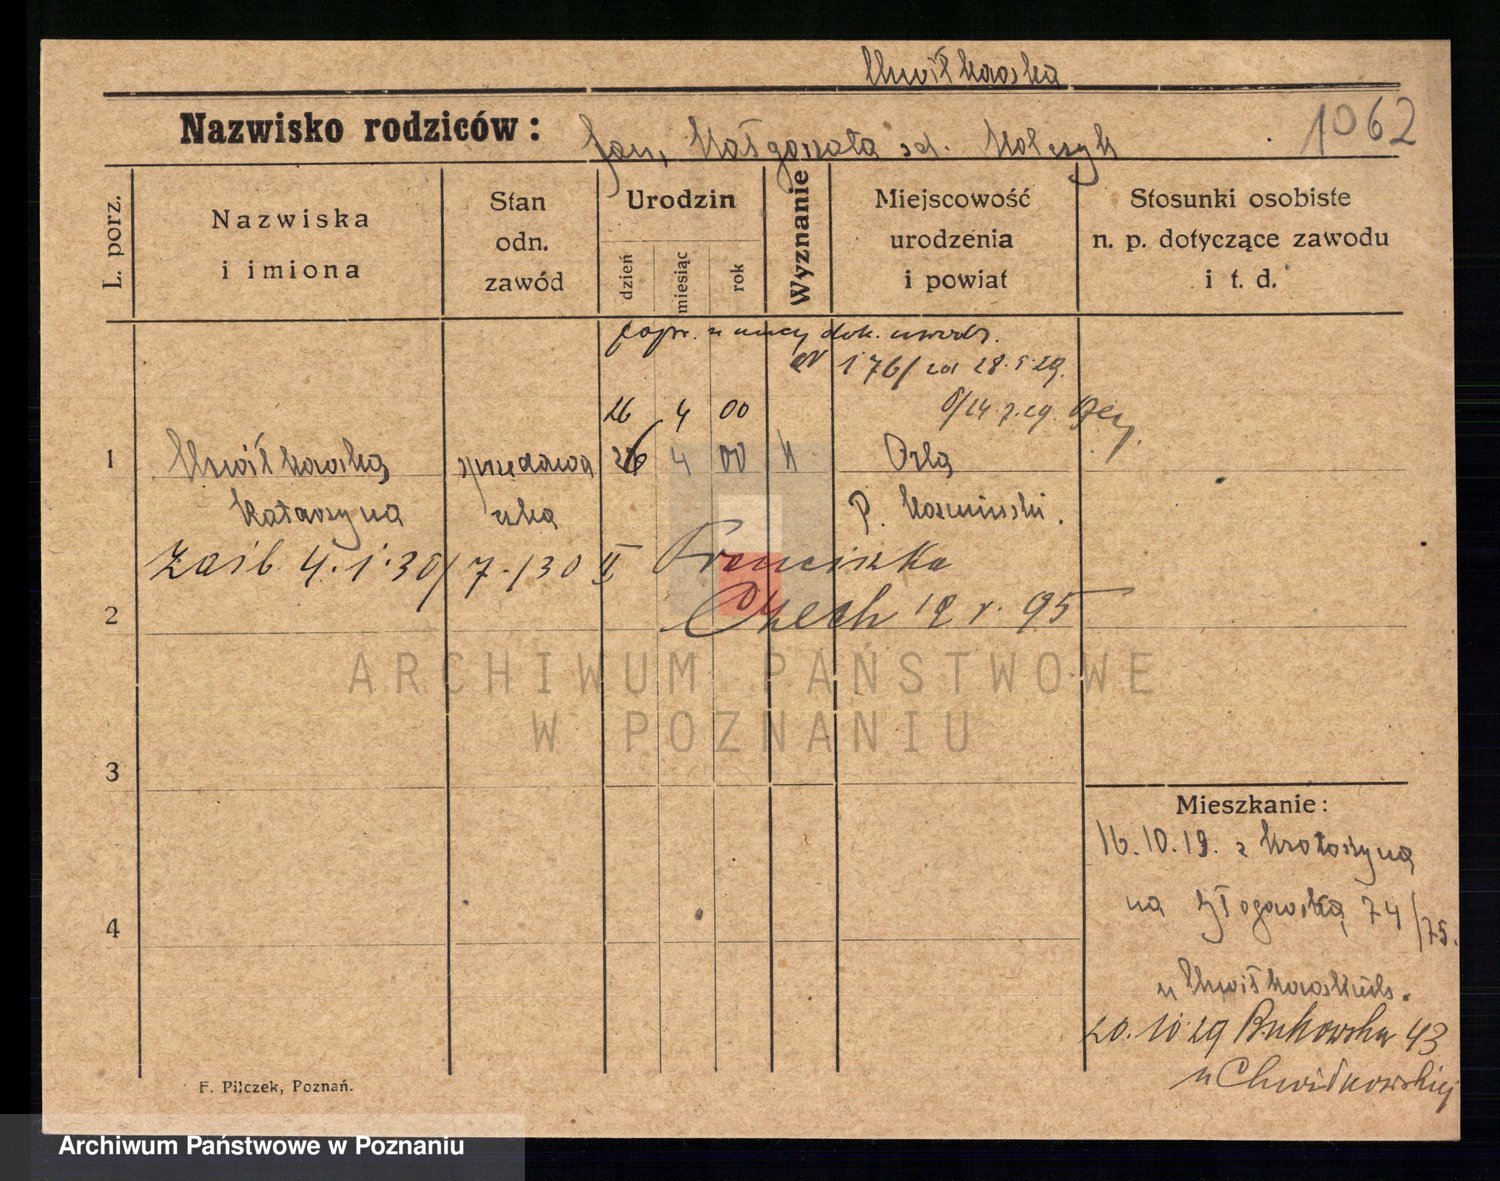 Chwiłkowska
Nazwisko rodziców: Jan, Małgorzata zd. Wolczyk
1062
L. porz.
Nazwiska i imiona
Stan odn. zawód
Urodzin
dzień
miesiąc
rok
Wyznanie
Miejscowość urodzenia i powiat
Stosunki osobiste n. p. dotyczące zawodu i t. d.
popr. z mocy dok. urodz.
176/ 28.5.29.
26 4 00
1 Chwiłkowska 26 4 00 K Orla
Katarzyna P. Kozmiński.
4.1.30/7./30 II Franciszka
2 Czech 12 r. 95
ARCHIWUM PAŃSTWOWE
W POZNANIU
3
Mieszkanie:
16.10.19. z Krotoszyna
4
na Głogowską 74/75.
u Chwiłkowskich.
20.10.29 Bukowska 43
u Chwiłkowskiej
F. Pilczek, Poznań.
Archiwum Państwowe w Poznaniu